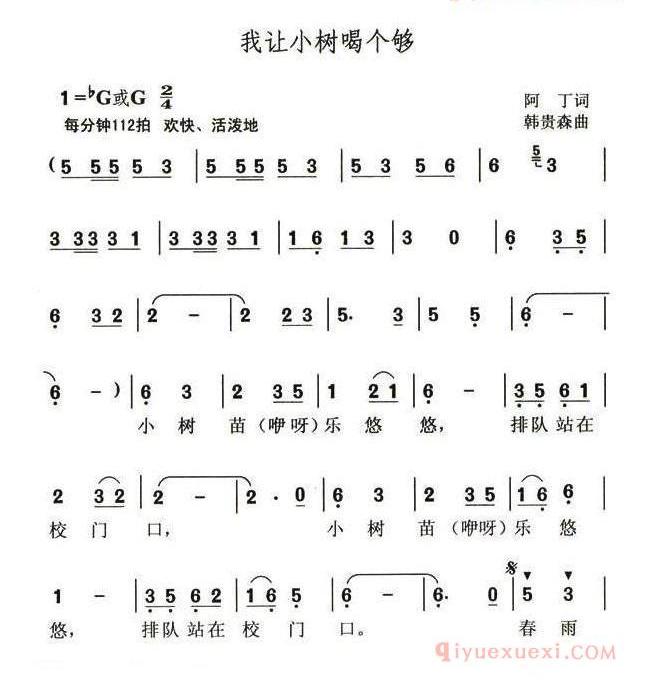 我让小树喝个够
1=♭G或G 2/4
阿 丁词
每分钟112拍 欢快、活泼地
韩贵森曲
(5 55 5 3 | 5 55 5 3 | 5 3 5 6 | 6 5 3 |
3 33 3 1 | 3 33 3 1 | 1 6 1 3 | 3 0 | 6 3 5 |
6 3 2 | 2 - | 2 2 3 | 5. 3 | 2 5 | 6 - |
6 - ) | 6 3 | 2 3 5 | 1 2 1 | 6 - | 3 5 6 1 |
小 树 苗(咿呀)乐 悠 悠, 排队站在
2 3 2 | 2 - | 2 . 0 | 6 3 | 2 3 5 | 1 6 6 |
校 门 口, 小 树 苗(咿呀)乐 悠
1 - | 3 5 6 2 | 1 6 5 | 6 - | 6. 0 | 5 3 |
悠, 排队站在 校 门 口。 春 雨
qiyuexuexi.com(奇乐学习网)